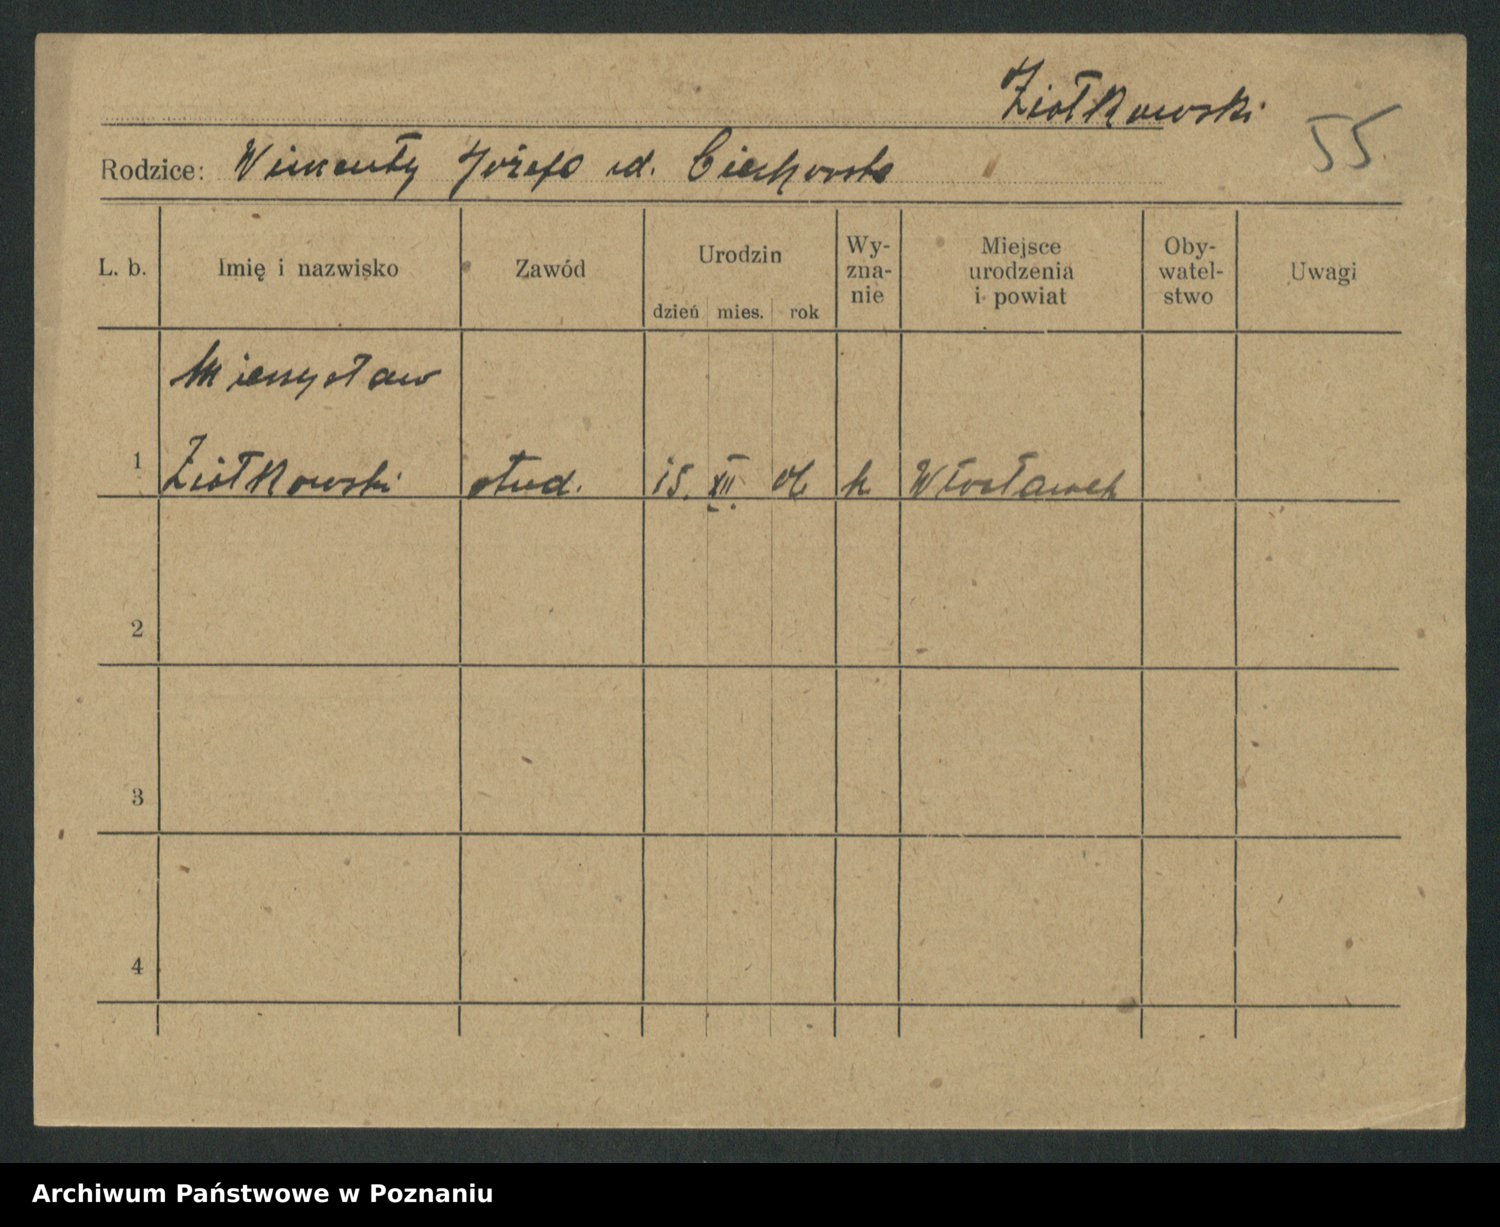 Ziółkowski
55
Rodzice: Wincenty Józefa z d. Ciechorska
L. b. Imię i nazwisko Zawód Urodzin dzień mies. rok Wy-zna-nie Miejsce urodzenia i powiat Oby-watel-stwo Uwagi
Mieczysław
1 Ziółkowski stud. 15. XII. 06 k Włocławek
2
3
4
Archiwum Państwowe w Poznaniu